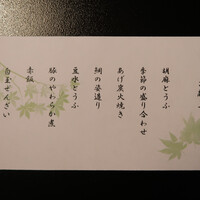 胡麻とうふ
季節の盛り合わせ
あげ炭火焼き
鯛の姿造り
豆水とうふ
豚のやわらか煮
赤飯
白玉ぜんざい